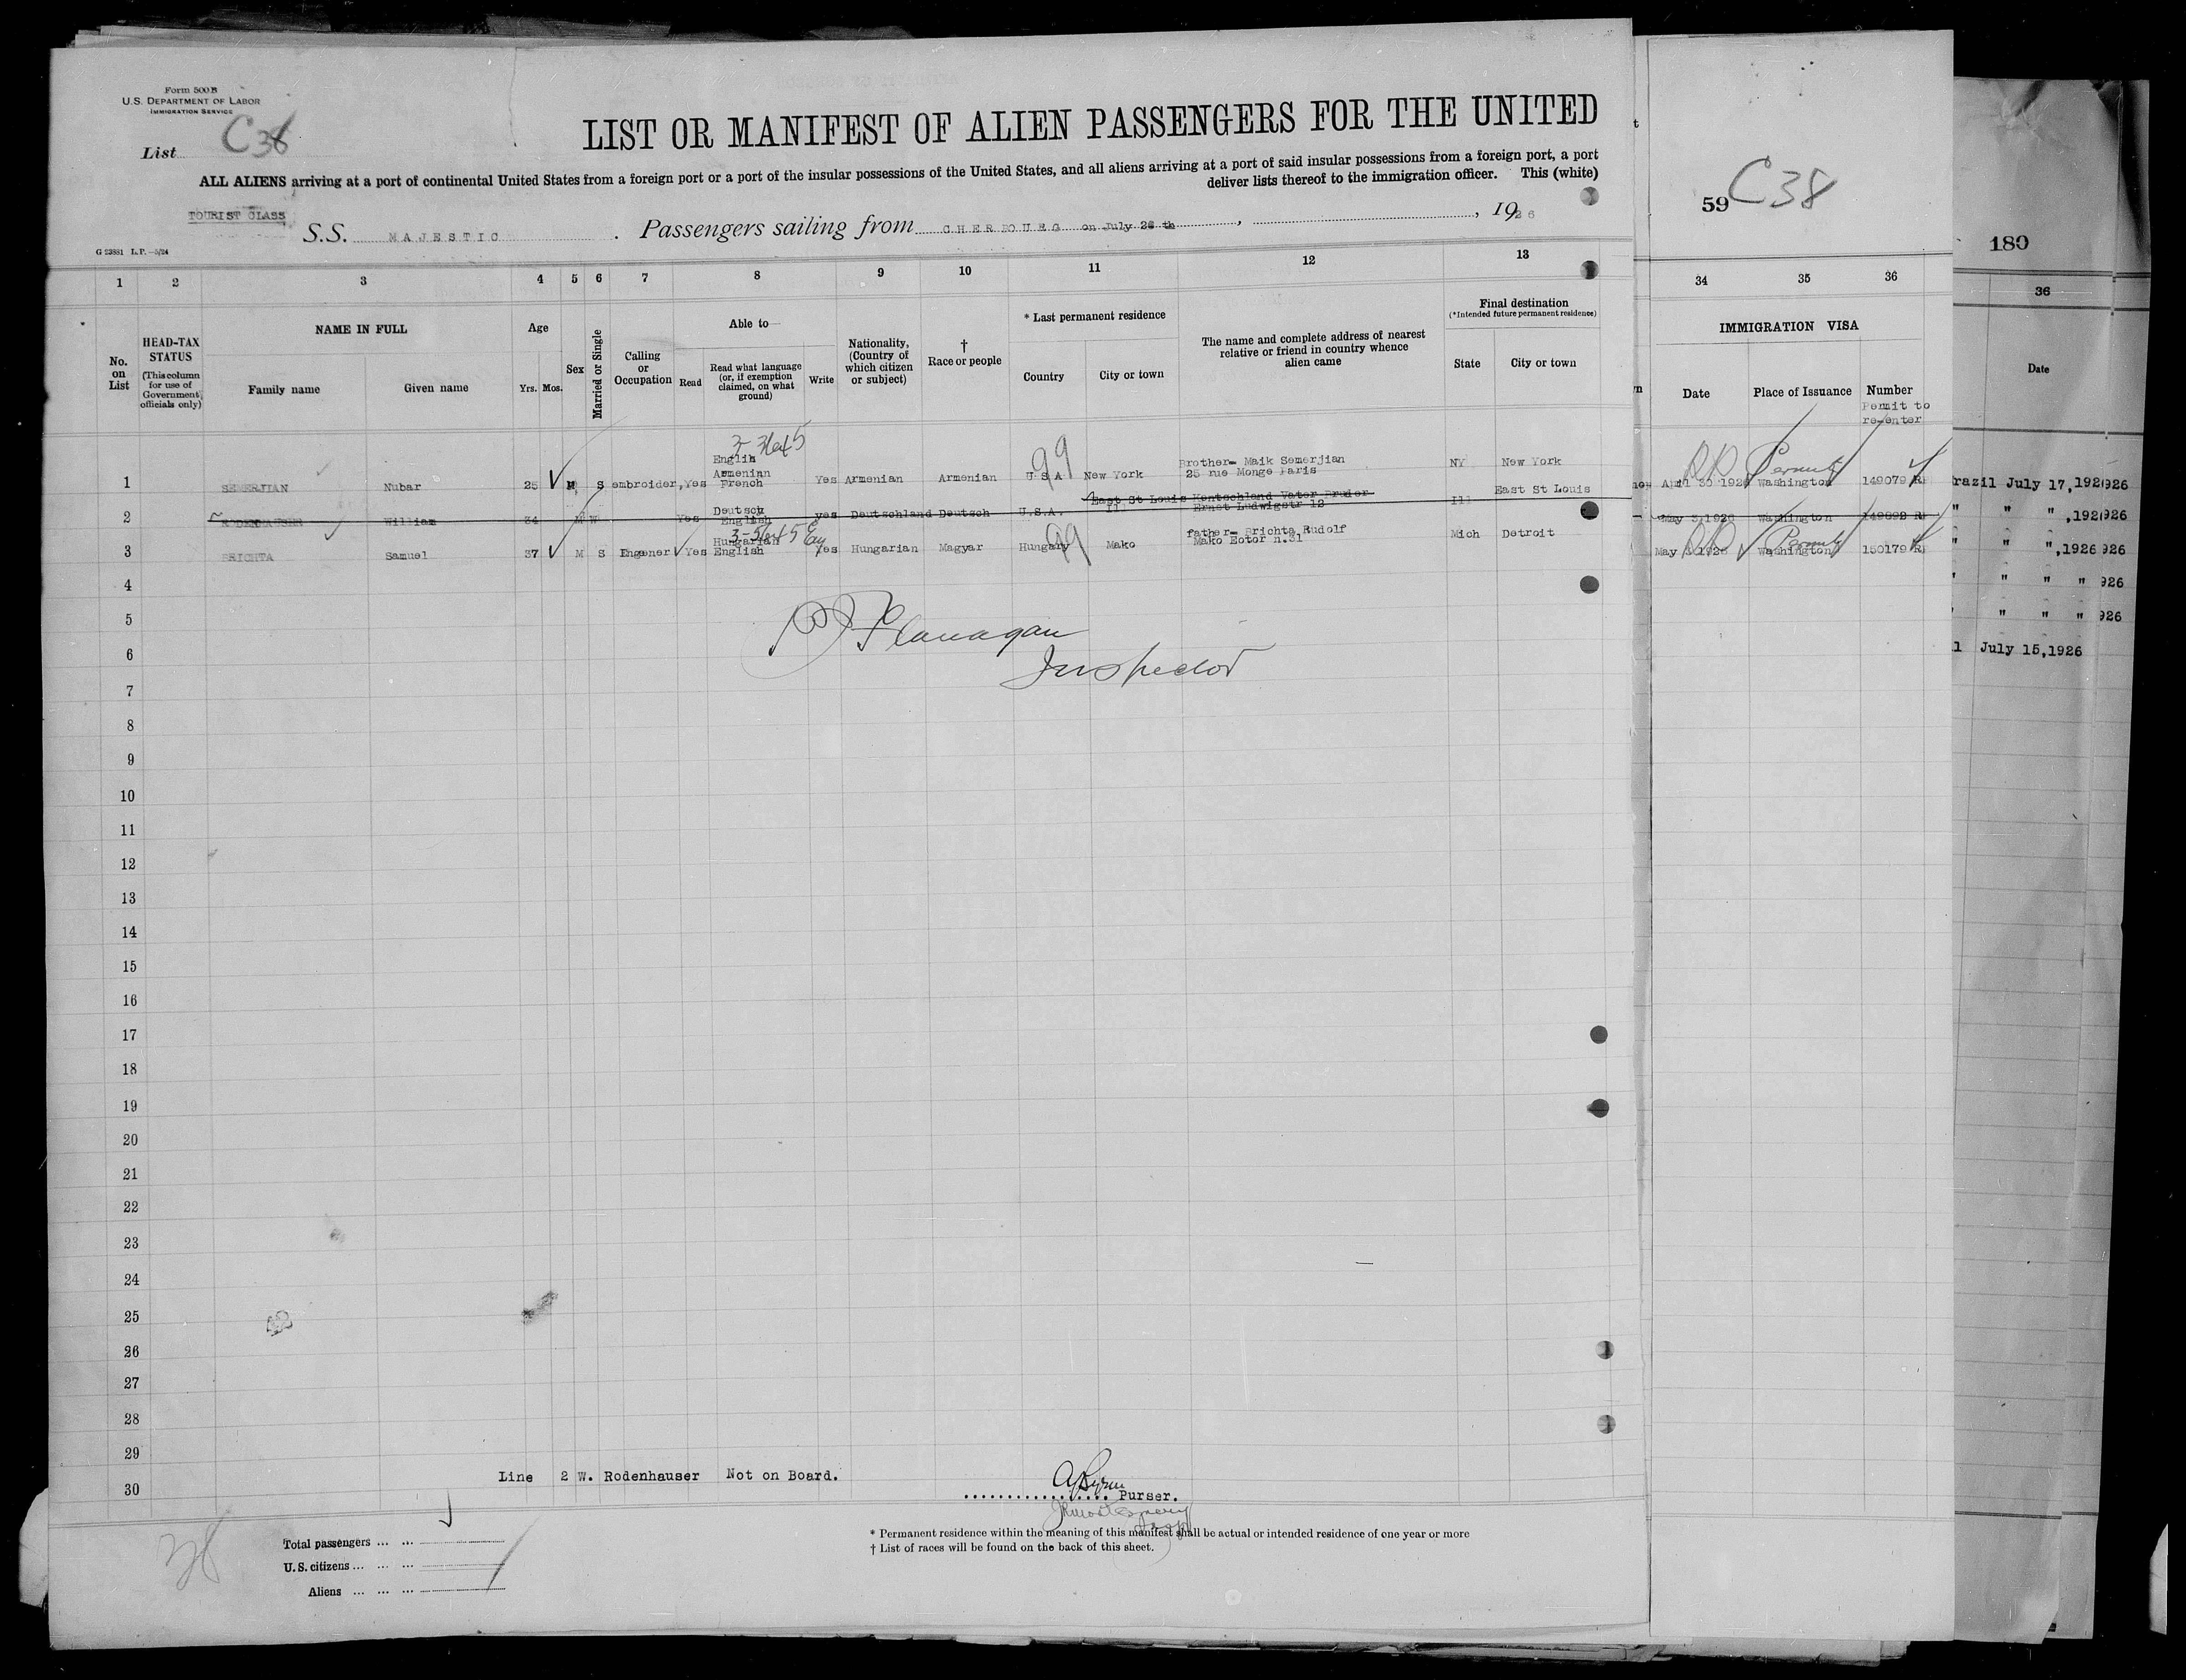 Form 500B
U.S. DEPARTMENT OF LABOR
IMMIGRATION SERVICE
List C 38
LIST OR MANIFEST OF ALIEN PASSENGERS FOR THE UNITED
ALL ALIENS arriving at a port of continental United States from a foreign port or a port of the insular possessions of the United States, and all aliens arriving at a port of said insular possessions from a foreign port, a port
deliver lists thereof to the immigration officer. This (white)
TOURIST CLASS
S.S. MAJESTIC . Passengers sailing from CHERBOURG on July , , 1926
G 23881 L.P.—5/24
1 2 3 4 5 6 7 8 9 10 11 12 13
No. on List
HEAD-TAX STATUS (This column for use of Government officials only)
NAME IN FULL
Family name Given name
Age
Yrs. Mos.
Sex
Married or Single
Calling or Occupation
Able to
Read
Read what language (or, if exemption claimed, on what ground)
Write
Nationality, (Country of which citizen or subject)
† Race or people
* Last permanent residence
Country City or town
The name and complete address of nearest relative or friend in country whence alien came
Final destination
(*Intended future permanent residence)
State City or town
1 SEMERJIAN Nubar 25 M S embroider, Yes Englih Armenian French Yes Armenian Armenian U S A New York Brother- Maik Semerjian 25 rue Monge Paris NY New York
99
2 RODENHAUSER William 34 M W Yes Deutsch English yes Deutschland Deutsch U.S.A. East St Louis Ill Ernst Ludwigstr 12 Ill East St Louis
3 BRICHTA Samuel 37 M S Engener Yes Hungarian English Yes Hungarian Magyar Hungary Mako father- Brichta Rudolf Mako Eotor n.31 Mich Detroit
99
4
5
6
P Flanagan
Inspector
7
8
9
10
11
12
13
14
15
16
17
18
19
20
21
22
23
24
25
26
27
28
29
30
Line 2 W. Rodenhauser Not on Board.
Purser.
38
Total passengers ... ...
U.S. citizens ... ... ...
Aliens ... ... ...
* Permanent residence within the meaning of this manifest shall be actual or intended residence of one year or more
† List of races will be found on the back of this sheet.
59 C 38
34 35 36
IMMIGRATION VISA
Date Place of Issuance Number
Permit to
re-enter
April 30 1926 Washington 149079 R
Permit
May 3 1926 Washington
May 1926 Washington 150179 R
Permit
180
36
Date
razil July 17, 1926
" " " ,192
" " " ,1926
" " "
" " "
July 15,1926
926
926
926
926
926